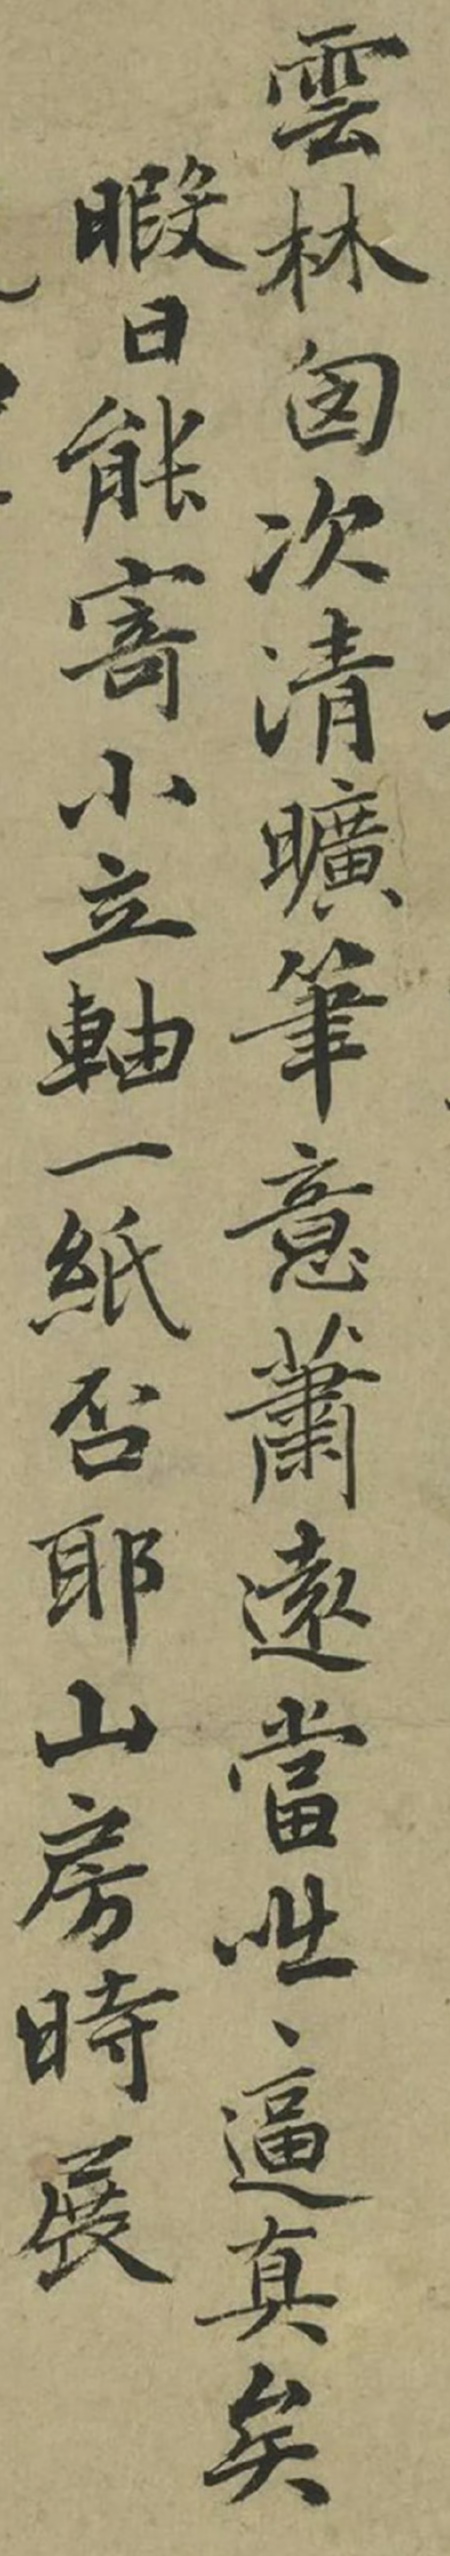 雲林囪次清曠筆意蕭遠當咄、逼真矣
暇日能寄小立軸一紙否耶山房時展